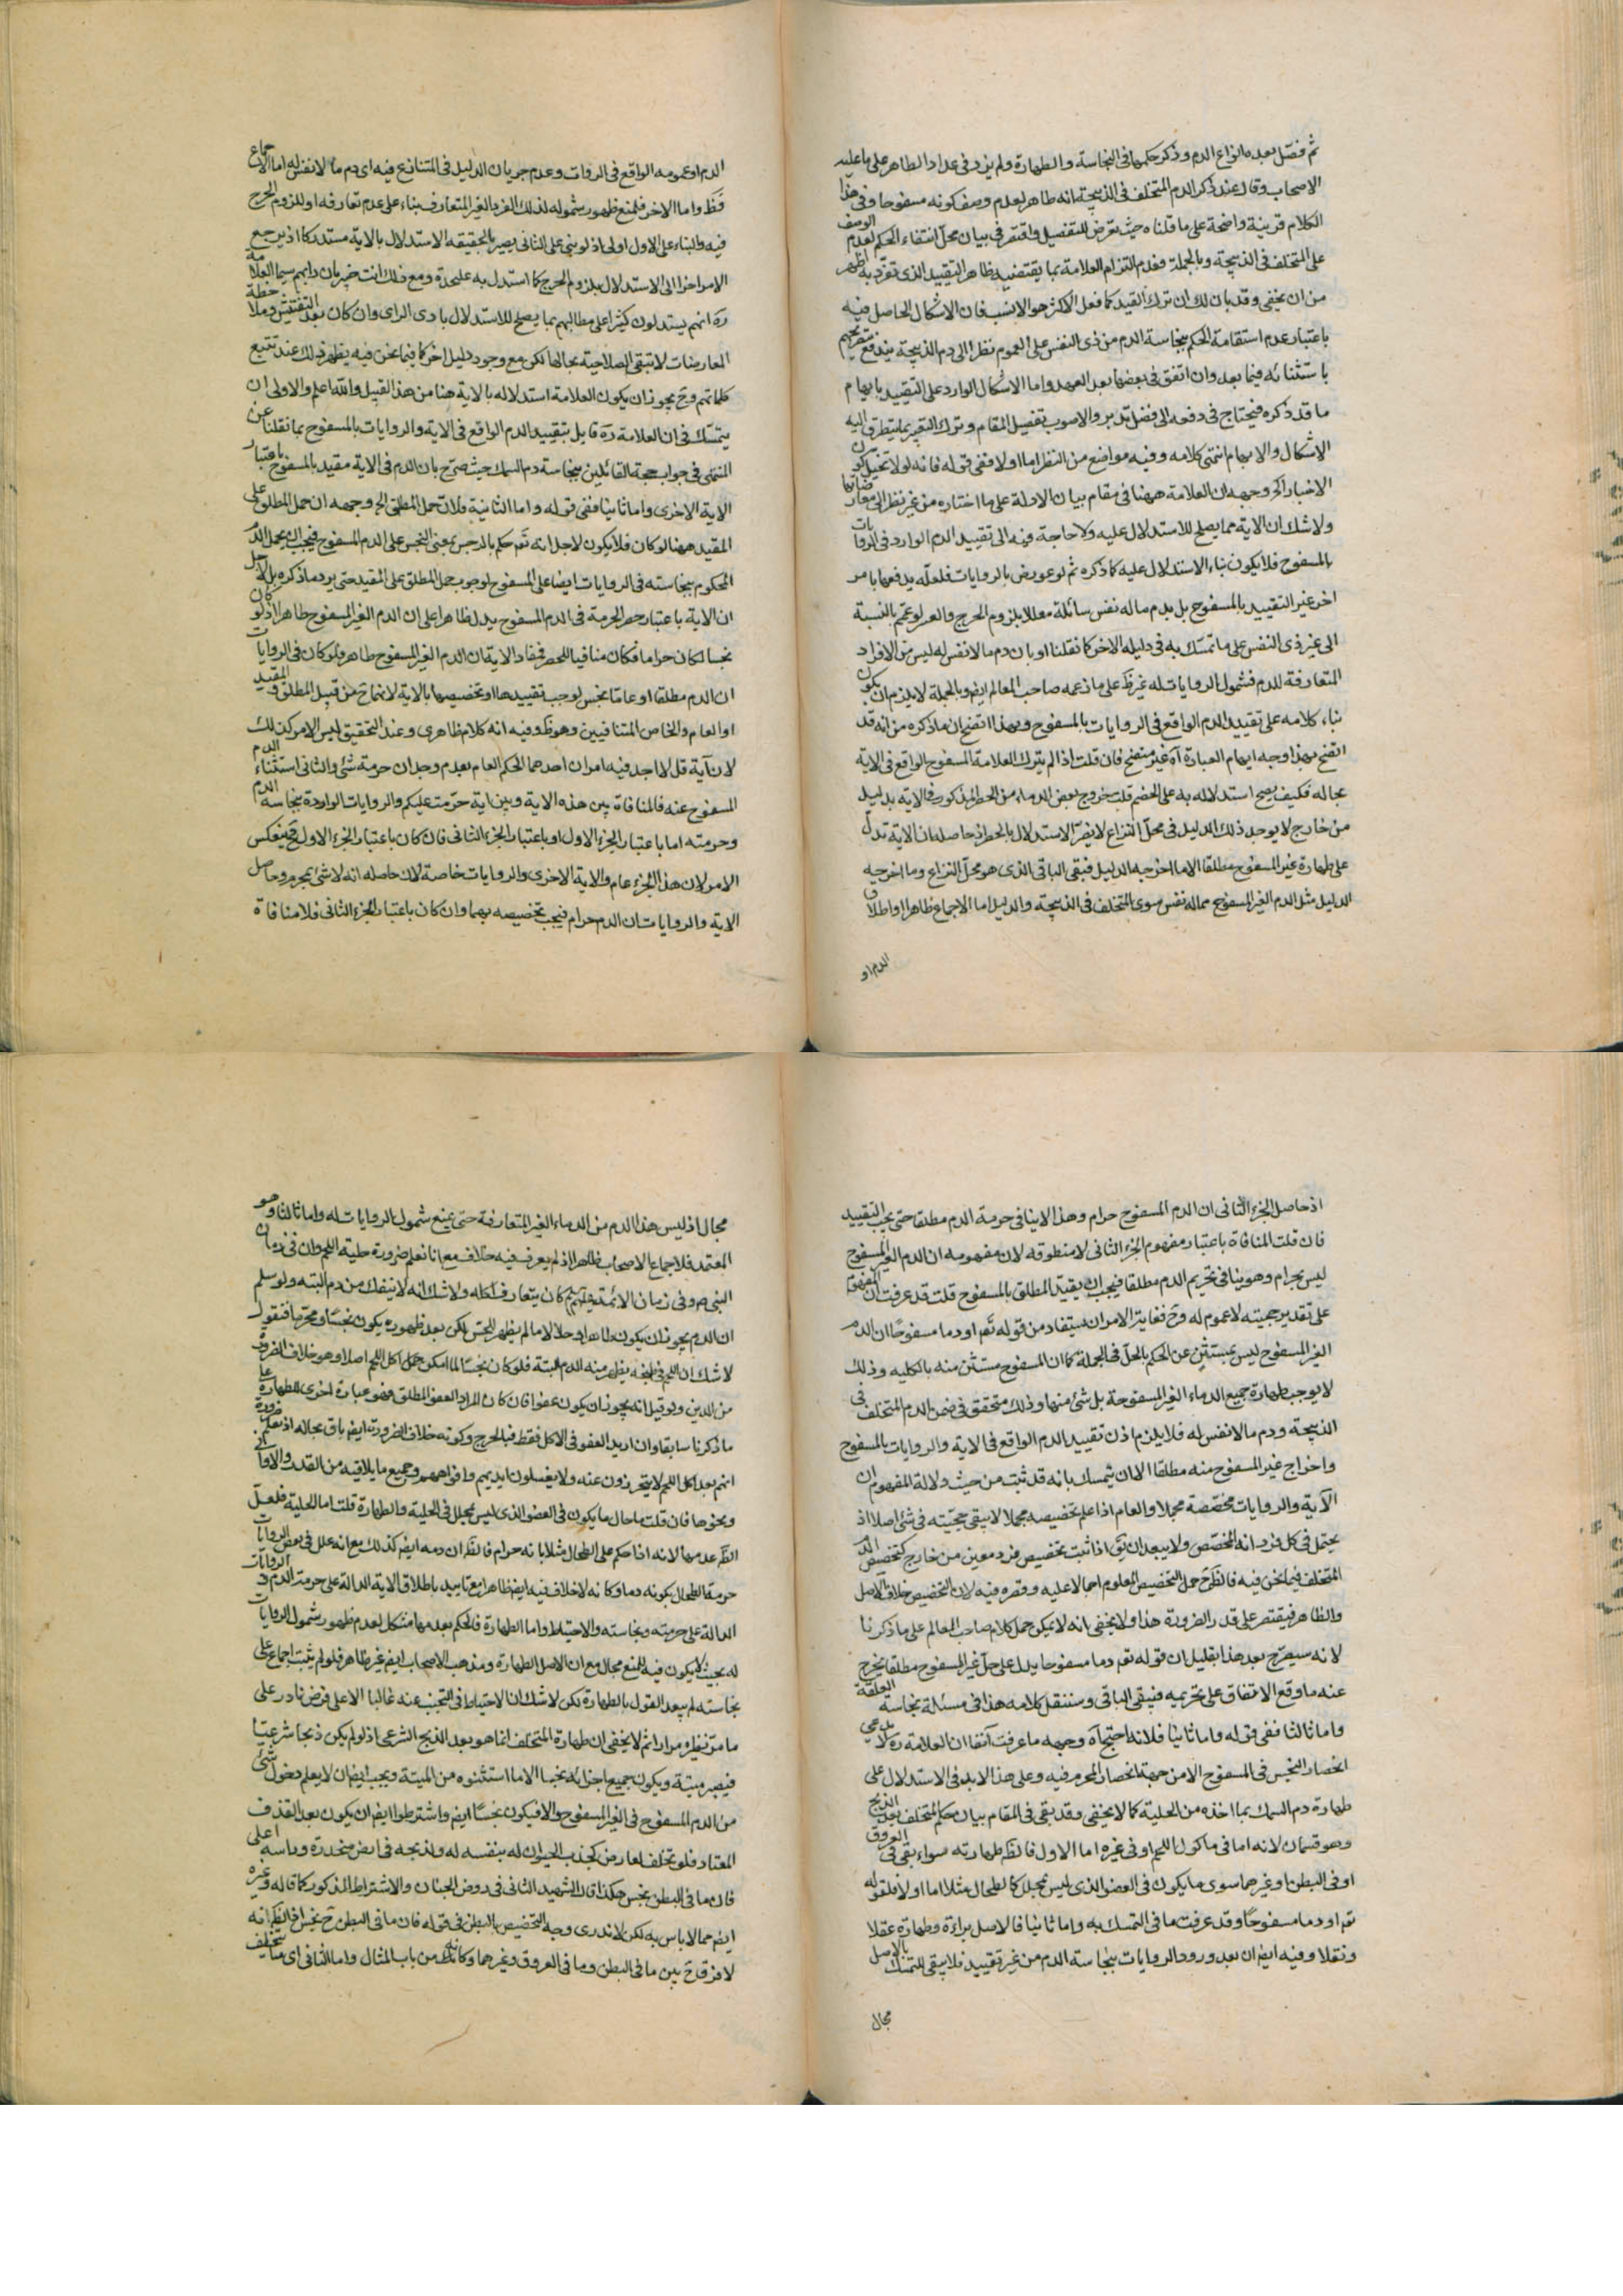 ثم فصّل بعد ما انواع الدم وذكر حكمها فى النجاسة والطهارة ولم يزد فى عداد الطاهر على ما عليه
الاصحاب وقال عند ذكر الدم المتخلف فى الذبيحة انه طاهر لعدم وصف كونه مسفوحا وفى هذا
الكلام قرينة واضحة على ما قلناه حيث تعرض للتفصيل واقتصر فى بيان محلّ انتفاء الحكم لعدم الوصف
على المتخلف فى الذبيحة وبالجملة فعدم التزام العلامة بما يقتضيه ظاهر التقييد الذى تفرّد به اظهر
من ان يخفى وقد بان لك ان ترك القيد كما فعل الاكثر هو الانسب فان الاشكال الحاصل فيه
باعتبار عدم استقامة الحكم بنجاسة الدم من ذى النفس على العموم نظرا الى دم الذبيحة يندفع بتصريحهم
باستثنائه فيما بعد وان اتفق فى بعضها بعد العهد واما الاشكال الوارد على التقييد بايهام
ما قد ذكره فيحتاج فى دفعه الى فضل تدبر والاصوب تفصيل المقام وترك التعبير بما يتطرق اليه
الاشكال والايهام انتهى كلامه وفيه مواضع من النظر اما اولا ففى قوله فانه لولا تخيل كون
الاخبار آلخ وجهه ان العلامة ههنا فى مقام بيان الادلة على ما اختاره من غير نظر الى معارضاتها
ولا شك ان الاية مما يصلح للاستدلال عليه ولا حاجة فيه الى تقييد الدم الوارد فى الروايات
بالمسفوح فلا يكون بناء الاستدلال عليه كما ذكره ثم لو عورض بالروايات فلعلّه يدفعها بامر
اخر غير التقييد بالمسفوح بل بدم ماله نفس سائلة معللا بلزوم الحرج والعسر لو عمّ بالنسبة
الى غير ذى النفس على ما تمسّك به فى دليله الاخر كما نقلنا او بان دم ما لا نفس له ليس من الافراد
المتعارفة للدم فشمول الروايات له غير ظ على ما زعمه صاحب المعالم ايضا وبالجملة لا يلزم ان يكون
بناء كلامه على تقييد الدم الواقع فى الروايات بالمسفوح وبهذا اتضح ان ما ذكره من انه قد
اتضح بهذا وجه ايهام العبارة آه غير متضح فان قلت اذا لم يترك العلامة المسفوح الواقع فى الاية
بحاله فكيف يصح استدلاله به على الخصم قلت خروج بعض الدماء من الحصر المذكور فى الاية بدليل
من خارج لا يوجد ذلك الدليل فى محلّ النزاع لا يضرّ الاستدلال بالحصر اذ حاصله ان الاية تدلّ
على طهارة غير المسفوح مطلقا الا ما اخرجه الدليل فيبقى الباقى الذى هو محلّ النزاع وما اخرجه
الدليل مثل الدم الغير المسفوح مما له نفس سوى المتخلف فى الذبيحة والدليل اما الاجماع ظاهرا او اطلاق
الدم او
الدم او عمومه الواقع فى الروايات وعدم جريان الدليل فى المتنازع فيه اى دم ما لا نفس له اما الاجماع
فظ واما الاخر فلمنع ظهور شموله لذلك الفرد الغير المتعارف بناء على عدم تعارفه او للزوم الحرج
فيه والبناء على الاول اولى اذ لو بنى على الثانى يصير بالحقيقه الاستدلال بالاية مستدركا اذ يرجع
الامر اخرا الى الاستدلال بلزوم الحرج كما استدل به عليحدة ومع ذلك انت خبير بان دابهم سيما العلامة
ره انهم يستدلون كثيرا على مطالبهم بما يصلح للاستدلال بادى الراى وان كان بعد التفتيش وملاحظة
المعارضات لا تبقى الصلاحية بحالها لكن مع وجود دليل اخر كما فيما نحن فيه يظهر ذلك عند تتبع
كلماتهم وح يجوز ان يكون العلامة استدلاله بالاية هنا من هذا القبيل والله اعلم والاولى ان
يتمسّك فى ان العلامة ره قايل بتقييد الدم الواقع فى الاية والروايات بالمسفوح بما نقلنا عن
المنتهى فى جواب حجة القائلين بنجاسة دم السمك حيث صرّح بان الدم فى الاية مقيد بالمسفوح باعتبار
الاية الاخرى واما ثانيا ففى قوله واما الثانية فلان حمل المطلق الخ وجهه ان حمل المطلق على
المقيد ههنا لو كان فلا يكون لاجل انه تعم حكم بالرجس بمعنى النجس على الدم المسفوح فيجب ان يحمل الدم
المحكوم بنجاسته فى الروايات ايضا على المسفوح لوجوب حمل المطلق على المقيد حتى يرد ما ذكره بل لاجل
ان الاية باعتبار حصر الحرمة فى الدم المسفوح يدل ظاهرا على ان الدم الغير المسفوح طاهر اذ لو كان
نجسا لكان حراما فكان منافيا للحصر فمفاد الاية ان الدم الغير المسفوح طاهر فلو كان فى الروايات
ان الدم مطلقا او عاما نجس لوجب تقييدها او تخصيصها بالاية لانهما ح من قبيل المطلق والمقيد
او العام والخاص المتنافيين وهو ظ وفيه انه كلام ظاهرى وعند التحقيق ليس الامر كذلك
لان آية قل لا اجد فيه امران احدهما الحكم العام بعدم وجدان حرمة شئ والثانى استثناء الدم
المسفوح عنه فالمنافاة بين هذه الاية وبين اية حرّمت عليكم والروايات الواردة بنجاسة الدم
وحرمته اما باعتبار الجزء الاول او باعتبار الجزء الثانى فان كان باعتبار الجزء الاول فح ينعكس
الامر لان هذا الجزء عام والاية الاخرى والروايات خاصة لان حاصله انه لا شئ بمحرم وحاصل
الاية والروايات ان الدم حرام فيجب تخصيصه بهما وان كان باعتبار الجزء الثانى فلا منافاة
اذ حاصل الجزء الثانى ان الدم المسفوح حرام وهذا لا ينافى حرمة الدم مطلقا حتى يجب التقييد
فان قلت المنافاة باعتبار مفهوم الجزء الثانى لا منطوقه لان مفهومه ان الدم الغير المسفوح
ليس بحرام وهو ينافى تحريم الدم مطلقا فيجب ان يقيّد المطلق بالمسفوح قلت قد عرفت ان المفهوم
على تقدير حجيته لا عموم له وح فغاية الامر ان يستفاد من قوله تعم او دما مسفوحا ان الدم
الغير المسفوح ليس بمستثنى عن الحكم بالحلّ فى الجملة كما ان المسفوح مستثنى منه بالكليه وذلك
لا يوجب طهارة جميع الدماء الغير المسفوحة بل شئ منها وذلك متحقق فى ضمن الدم المتخلف فى
الذبيحة ودم ما لا نفس له فلا يلزم اذن تقييد الدم الواقع فى الاية والروايات بالمسفوح
واخراج غير المسفوح منه مطلقا الا ان يتمسك بانه قد ثبت من حيث دلالة المفهوم ان
الآية والروايات مخصّصة مجملا والعام اذا علم تخصيصه مجملا لا يبقى حجيّته فى شئ اصلا اذ
يحتمل فى كل فرد انه المخصّص ولا يبعد ان يق اذا ثبت تخصيص فرد معين من خارج كتخصيص الدم
المتخلف فيما نحن فيه فالظ ح حمل التخصيص المعلوم اجمالا عليه وقصره فيه لان التخصيص خلاف الاصل
والظاهر فيقتصر على قدر الضرورة هذا ولا يخفى انه لا يمكن حمل كلام صاحب المعالم على ما ذكرنا
لانه سيصرّح بعد هذا بقليل ان قوله تعم دما مسفوحا يدل على حلّ غير المسفوح مطلقا يخرج
عنه ما وقع الاتفاق على تحريمه فيبقى الباقى وسننقل كلامه هذا فى مسئلة نجاسة العلقة
واما ثالثا ففى قوله واما ثانيا فلانه احتج آه وجهه ما عرفت آنفا ان العلامة ره لا يدعى
انحصار النجس فى المسفوح الا من جهة انحصار المحرم فيه وعلى هذا لا بد فى الاستدلال على
طهارة دم السمك بما اخذه من الحلية كما لا يخفى وقد بقى فى المقام بيان حكم المتخلف بعد الذبح
وهو قسمان لانه اما فى ماكول اللحم او فى غيره اما الاول فالظ طهارته سواء بقى فى العروق
او فى البطن او غيرهما سوى ما يكون فى العضو الذى ليس بمحلل كالطحال مثلا اما اولا فلقوله
تعم او دما مسفوحا وقد عرفت ما فى التمسك به واما ثانيا فالاصل براءة وطهارة عقلا
ونقلا وفيه ايضا ان بعد ورود الروايات بنجاسة الدم من غير تقييد فلا يبقى للتمسك بالاصل
مجال
مجال اذ ليس هذا الدم من الدماء الغير المتعارفة حتى يمنع شمول الروايات له واما ثالثا وهو
المعتمد فلاجماع الاصحاب ظاهرا اذ لم يعرف فيه خلاف مع انا نعلم ضرورة حلية اللحم وان فى زمان
النبى ص وفى زمان الائمة كان يتعارف اكله ولا شك انه لا ينفك من دم البتة ولو سلم
ان الدم يجوز ان يكون طاهرا وحلالا ما لم يظهر للحسّ لكن بعد ظهوره يكون نجسًا ومحرّما فنقول
لا شك ان اللحم فى طبخه يظهر منه الدم البتة فلو كان نجسًا لما امكن حمل اكل اللحم اصلا وهو خلاف الضرورة
من الدين ولو قيل انه يجوز ان يكون عفوا فان كان المراد العفو المطلق فهو عبارة اخرى للطهارة على
ما ذكرنا سابقا وان اريد العفو فى الاكل فقط فالحرج وكونه خلاف الضرورة ايضا باق بحاله اذ نعلم ضرورة
انهم بعد اكل اللحم لا يتحرزون عنه ولا يغسلون ايديهم وافواههم وجميع ما يلاقيه من القدر والاوانى
ونحوها فان قلت ما حال ما يكون فى العضو الذى ليس بمحلل فى الحلية والطهارة قلت اما الحلية فلعلّ
الظ عدمها لانه اذا حكم على الطحال مثلا بانه حرام فالظ ان دمه ايضا كذلك مع انه علل فى بعض الروايات
حرمة الطحال بكونه دما وكانه لا خلاف فيه ايضا ظاهرا مع تاييد باطلاق الاية الدالة على حرمة الدم والروايات
الدالة على حرمته ونجاسته والاحتياط واما الطهارة فالحكم بعدمها مشكل لعدم ظهور شمول الروايات
له بحيث لا يكون فيه للمنع مجال مع ان الاصل الطهارة ومذهب الاصحاب ايضا غير ظاهر فلو لم يثبت اجماع على
نجاسته لم يبعد القول بالطهارة لكن لا شك ان الاحتياط فى التجنب عنه غالبا الا على فرض نادر على
ما مرّ نظيره مرارا ثم لا يخفى ان طهارة المتخلف انما هو بعد الذبح الشرعى اذ لو لم يكن ذبحا شرعيّا
فيصير ميتة ويكون جميع اجزائه نجسا الا ما استثنوه من الميتة ويجب ايضا ان لا يعلم دخول شئ
من الدم المسفوح فى الغير المسفوح والا فيكون نجسًا ايضا واشترطوا ايضا ان يكون بعد القذف
المعتاد فلو تخلف لعارض كجذب الحيوان له بنفسه له ولذبحه فى ارض منحدرة وراسه اعلى
فان ما فى البطن نجس هكذا قال الشهيد الثانى فى روض الجنان والاشتراط المذكور كما قاله وغيره
ايضا مما لا باس به لكن لا ندرى وجه التخصيص بالبطن فى قوله فان ما فى البطن ح نجس اذ الظ انه
لا فرق ح بين ما فى البطن وما فى العروق وغيرهما وكانه من باب المثال واما الثانى اى ما يتخلف